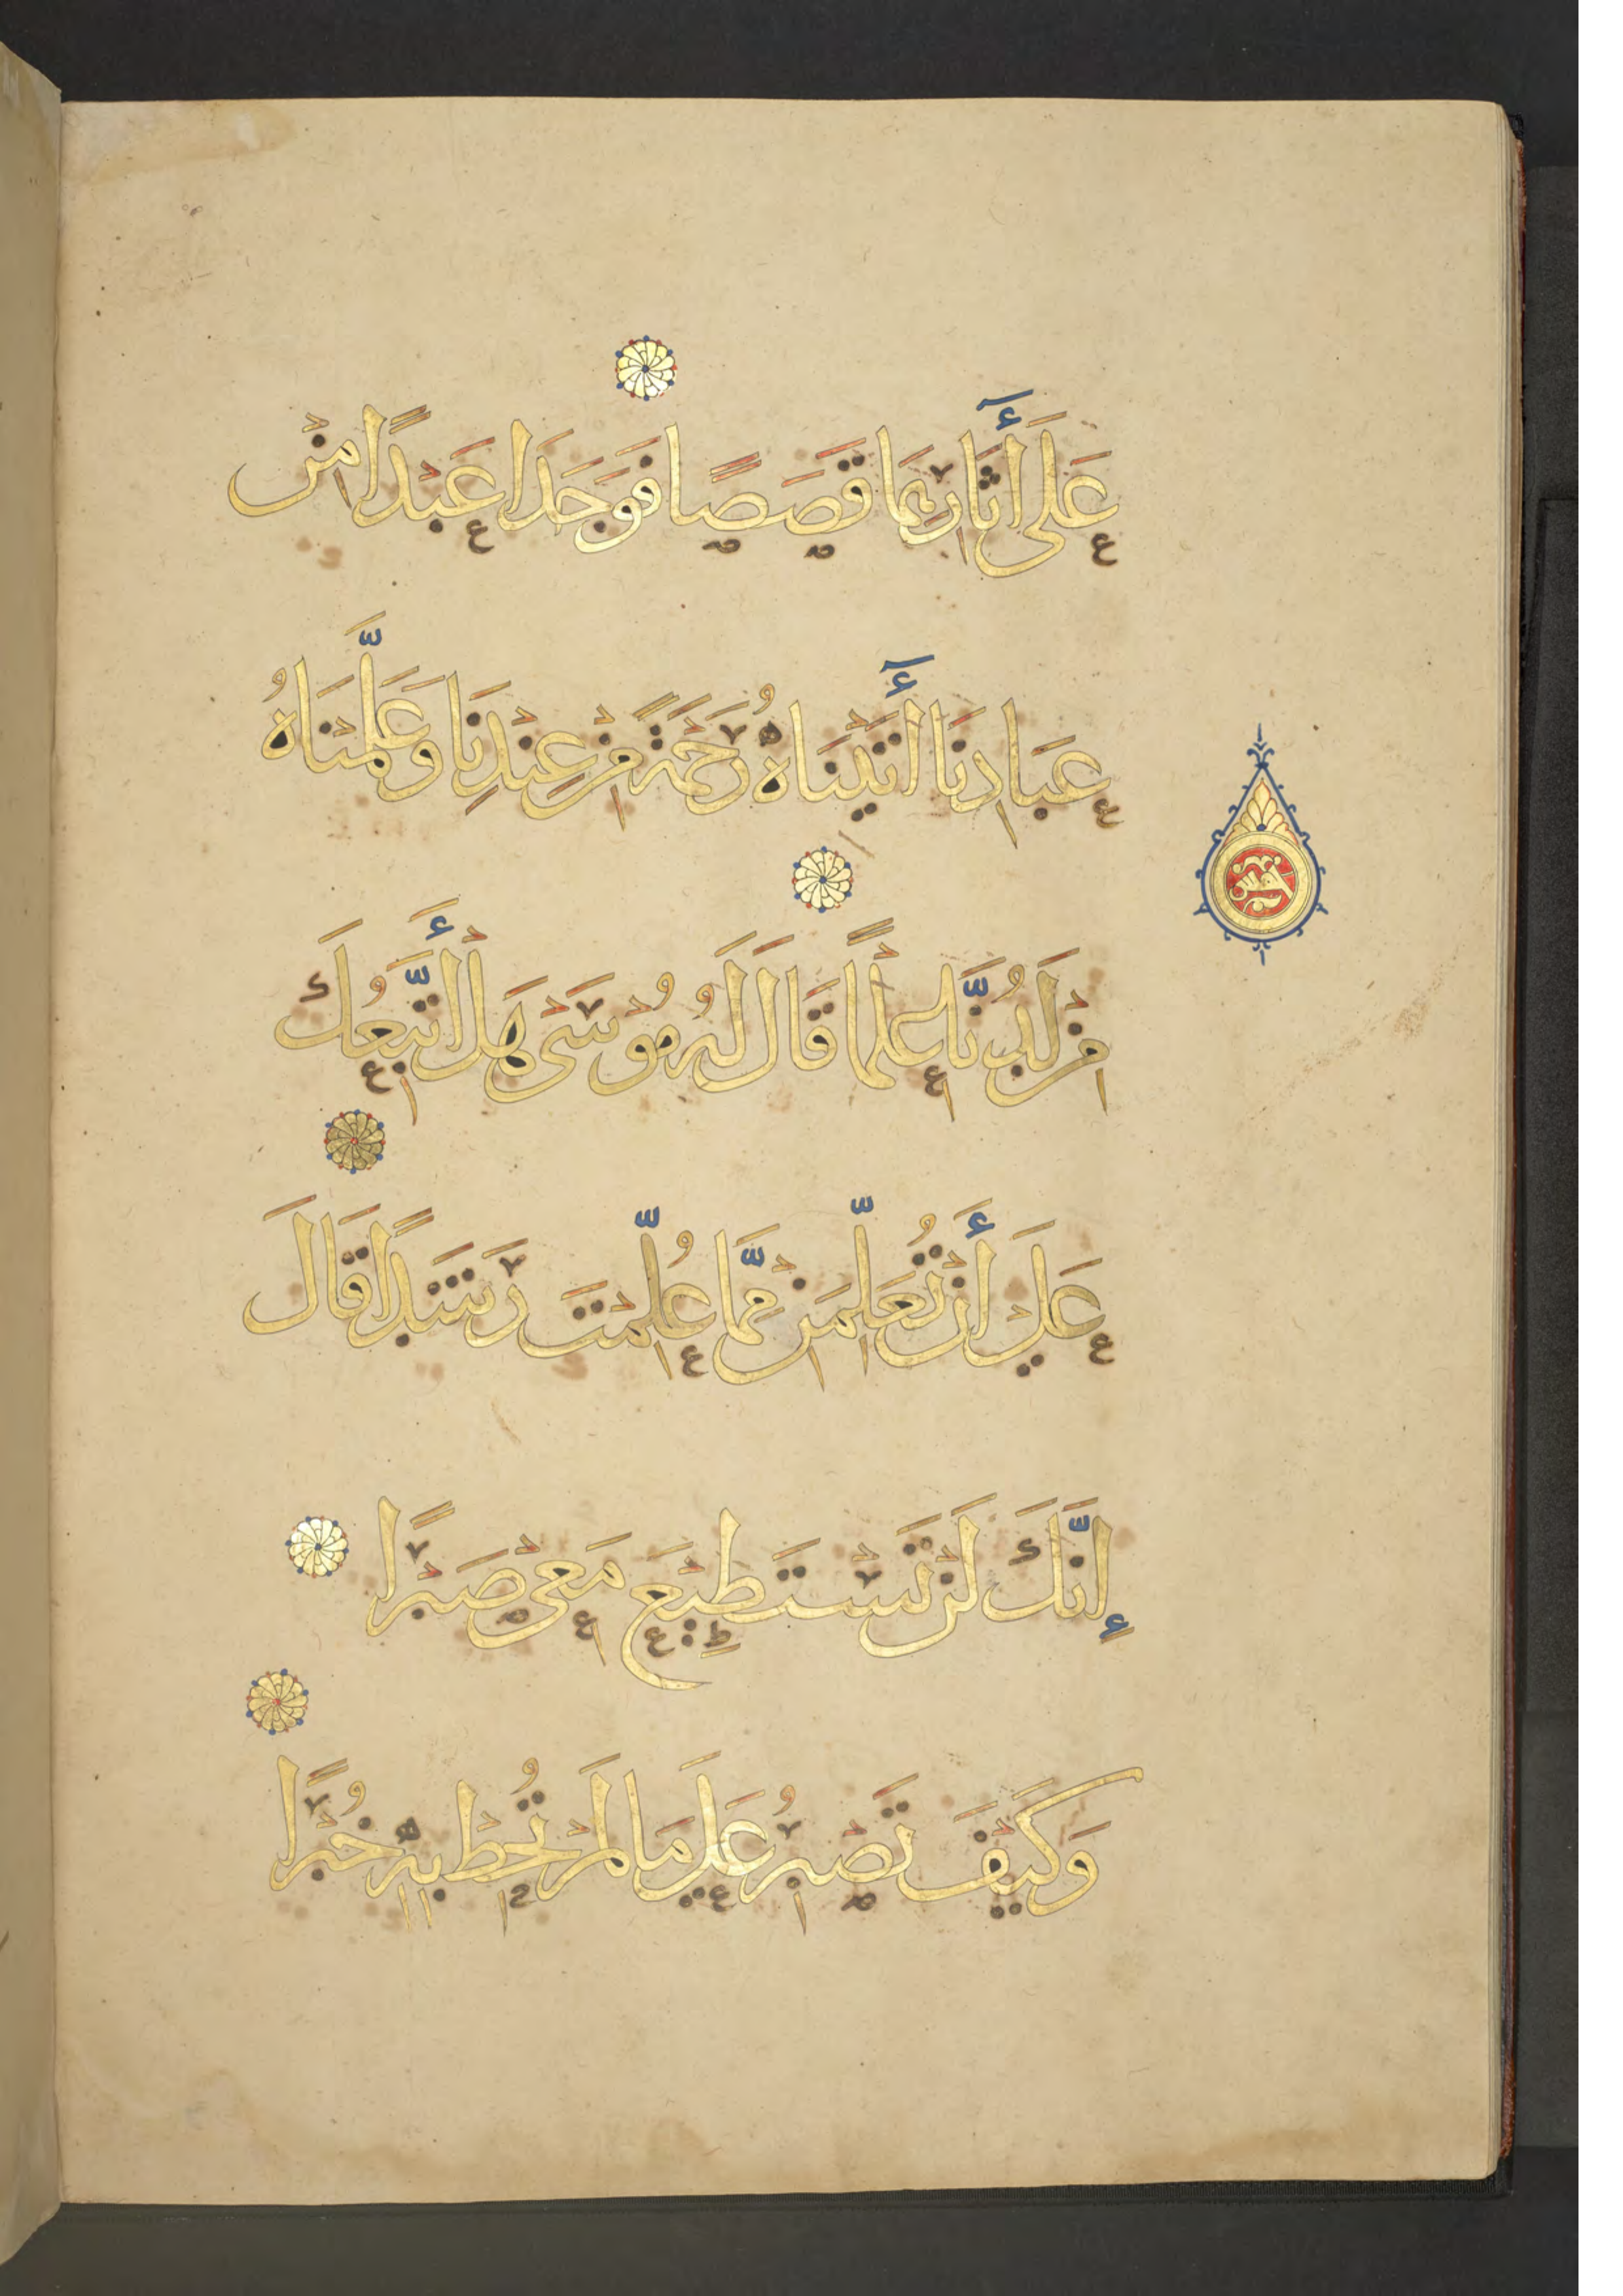 عَلَىٰ أَثَارِهِمَا قَصَصًا فَوَجَدَا عَبْدًا مِنْ
عِبَادِنَا أَتَيْنَاهُ رَحْمَةً مِنْ عِنْدِنَا وَعَلَّمْنَاهُ
مِنْ لَدُنَّا عِلْمًا قَالَ لَهُ مُوْسَىٰ هَلْ أَتَّبِعُكَ
عَلَىٰ أَنْ تُعَلِّمَنِ مِمَّا عُلِّمْتَ رَشَدًا قَالَ
إِنَّكَ لَنْ تَسْتَطِيْعَ مَعِيْ صَبْرًا
وَكَيْفَ تَصْبِرُ عَلَىٰ مَا لَمْ تُحِطْ بِهِ خُبْرًا